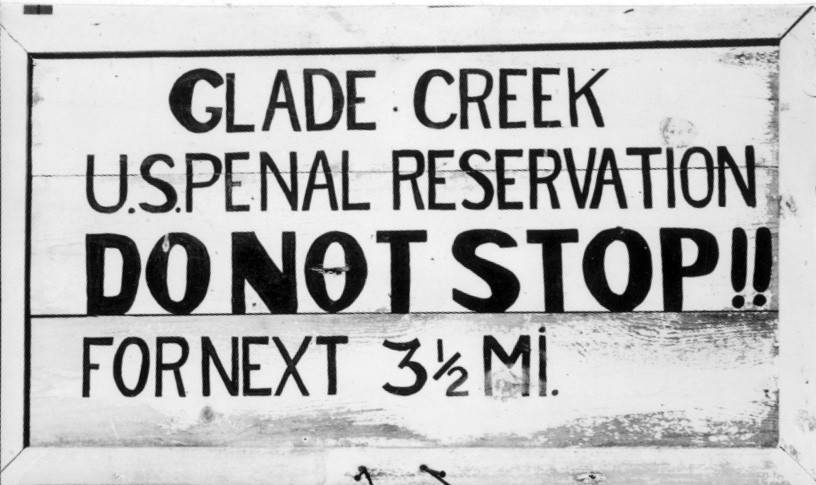 GLADE CREEK
U.S. PENAL RESERVATION
DO NOT STOP!!
FOR NEXT 3½ MI.